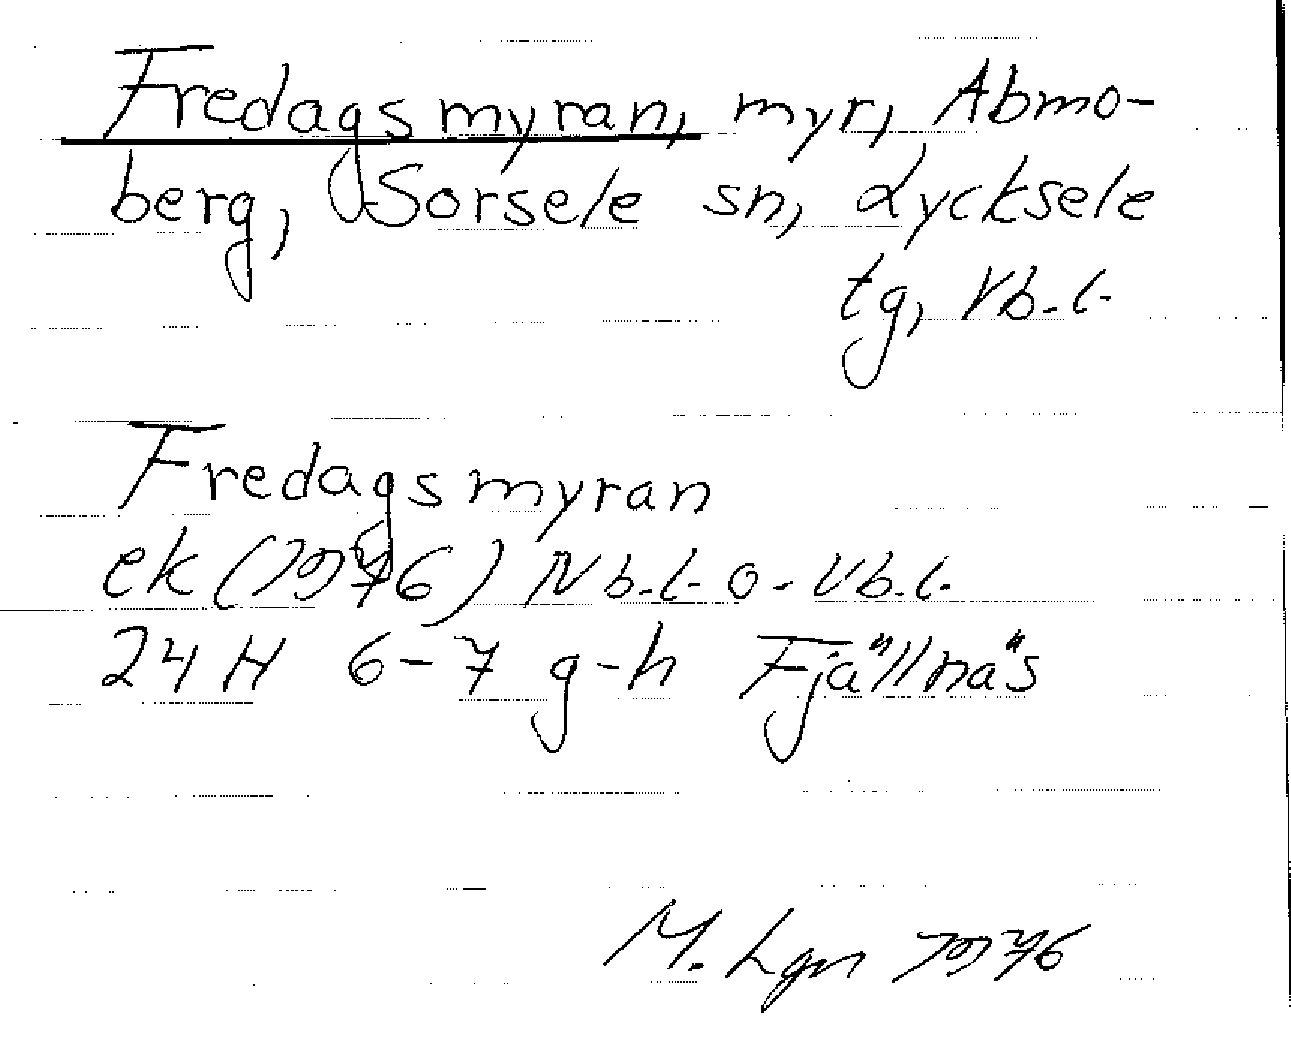 Fredagsmyran, myr, Abmo-
berg, Sorsele sn, Lycksele
tg, Vb. l.
Fredagsmyran
ek (1976) Nb. l. o. Vb. l.
24 H 6-7 g-h Fjällnäs
M. Lgn 1976